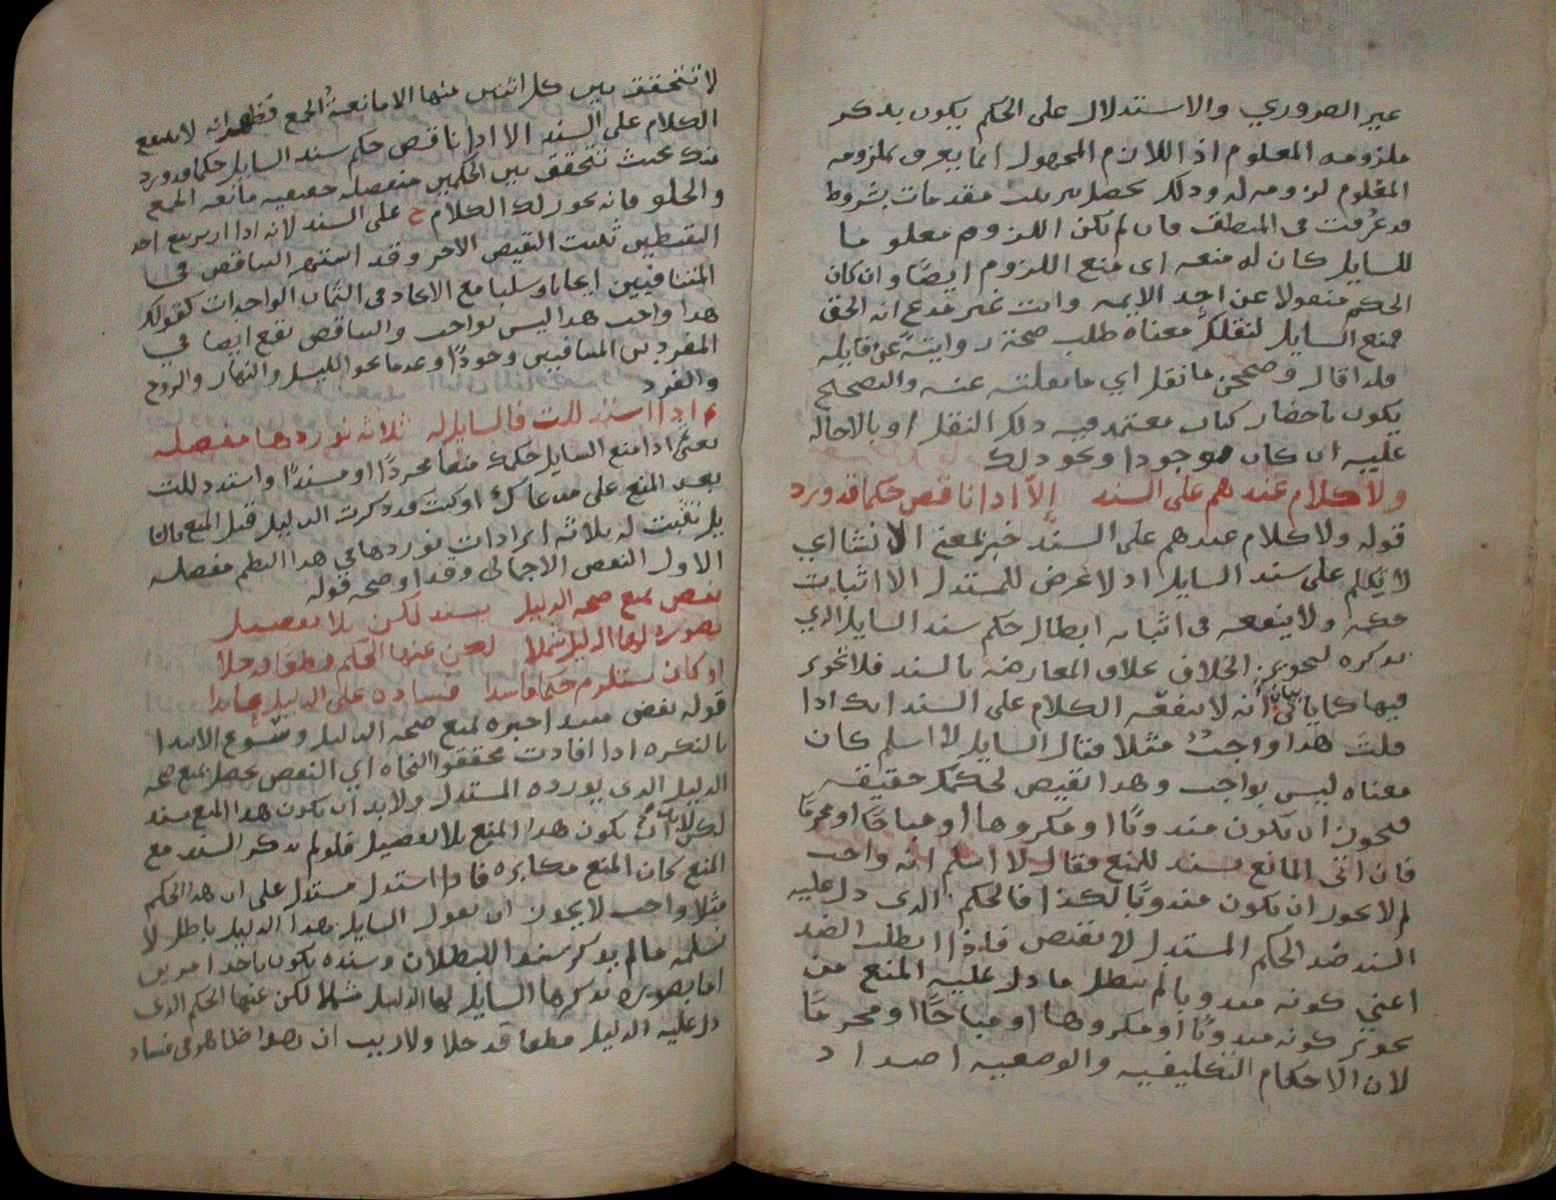 غير الضروري والاستدلال على الحكم يكون بذكر
ملزومه المعلوم اذ اللازم المجهول انما يعرف بملزومه
المعلوم لزومه له وذلك يحصل بترتيب مقدمات بشروط
قد عرفت في المنطق فان لم يكن اللزوم معلوما
للسايل كان له منعه اى منع اللزوم ايضًا وان كان
الحكم منقولا عن احد الايمه وانت غير مدع انه الحق
فمنع السايل لنقلك معناه طلب صحة روايته عن قايله
فلذا قال وصححن ما نقل اي ما نقلته عنه والتصحيح
يكون باحضار كتاب معتمد فيه ذلك النقل او بالاحاله
عليه ان كان موجودا ونحو ذلك
ولا كلام عندهم على السند الا اذا ناقص حكما قد ورد
قوله ولا كلام عندهم على السند خبر بمعنى الانشا اي
لا تكلم على سند السايل اذ لا غرض للمستدل الا اثبات
حكمه ولا ينفعه في اثباته ابطال حكم سند السايل الذي
يذكره لتجويز الخلاف بخلاف المعارضه بالسند فلا تجويز
فيها كما ياتي بيان انه لا ينفعه الكلام على السند انك اذا
قلت هذا واجب مثلا فقال السايل لا اسلم كان
معناه ليس بواجب وهذا نقيض لحكمك حقيقه
فيجوز ان يكون مندوبًا او مكروها او مباحًا او محرمًا
فان اتى المانع بسند للمنع فقال لا اسلم انه واجب
لم لا يجوز ان يكون مندوبًا لكذا فالحكم الذى دل عليه
السند ضد الحكم المستدل لا نقيض فاذا ابطلت الضد
اعني كونه مندوبا لم يبطل ما دل عليه المنع من
تجويز كونه مندوبًا او مكروها او مباحًا او محرمًا
لان الاحكام التكليفيه والوضعيه اضداد
لا تتحقق بين كل اثنين منها الا مانعة الجمع فظهر انه لا ينفع
الكلام على السند الا اذا ناقض حكم سند السايل حكما قد ورد
منك بحيث تتحقق بين الحكمين منفصله حقيقيه مانعه الجمع
والخلو فانه يجوز لك الكلام ح على السند لانه اذا ارتفع احد
النقيضين ثبت النقيض الاخر وقد اشتهر التناقض في
المتنافيين ايجابا وسلبا مع الاتحاد في الثمان الواحدات كقولك
هذا واجب هذا ليس بواجب والتناقض يقع ايضا في
المفردين المتنافيين وجودًا وعدما نحو الليل والنهار والزوج
والفرد
اذا استدللت فالسايل له ثلاثة نوردها مفصله
يعني اذا منع السايل حكمك منعا مجردًا او مسندًا واستدللت
بعد المنع على مدعاك او كنت قد ذكرت الدليل قبل المنع فالسا
يل تثبت له ثلاثه ايرادات نوردها في هذا النظم مفصله
الاول النقض الاجمالي وقد اوضحه قوله
نقض بمنع صحه الدليل بسند لكن بلا تفصيل
بصوره لها الدليل شملا لكن عنها الحكم قطعا قد خلا
او كان يستلزم حكما فاسدا فساده على الدليل
قوله نقض مبتدا خبره لمنع صحه الدليل وسوغ الابتدا
بالنكره اذا افادت محققوا النحاه اي النقض يحصل بمنع صحه
الدليل الذى يورده المستدل ولا بد ان يكون هذا المنع بسند
لكن لا بد ان يكون هذا المنع بلا تفصيل فلو لم يذكر السند مع
المنع كان المنع مكابره فاذا استدل مستدل على ان هذا الحكم
مثلا واجب لا يجوز ان يقول السايل هذا الدليل باطل لا
نسلمه ما لم يذكر سندا للبطلان وسنده يكون باحد امرين
اما بصوره يذكرها السايل لها الدليل شملا لكن عنها الحكم الذى
دل عليه الدليل قطعا قد خلا ولا ريب ان هذا ظاهر في فساد